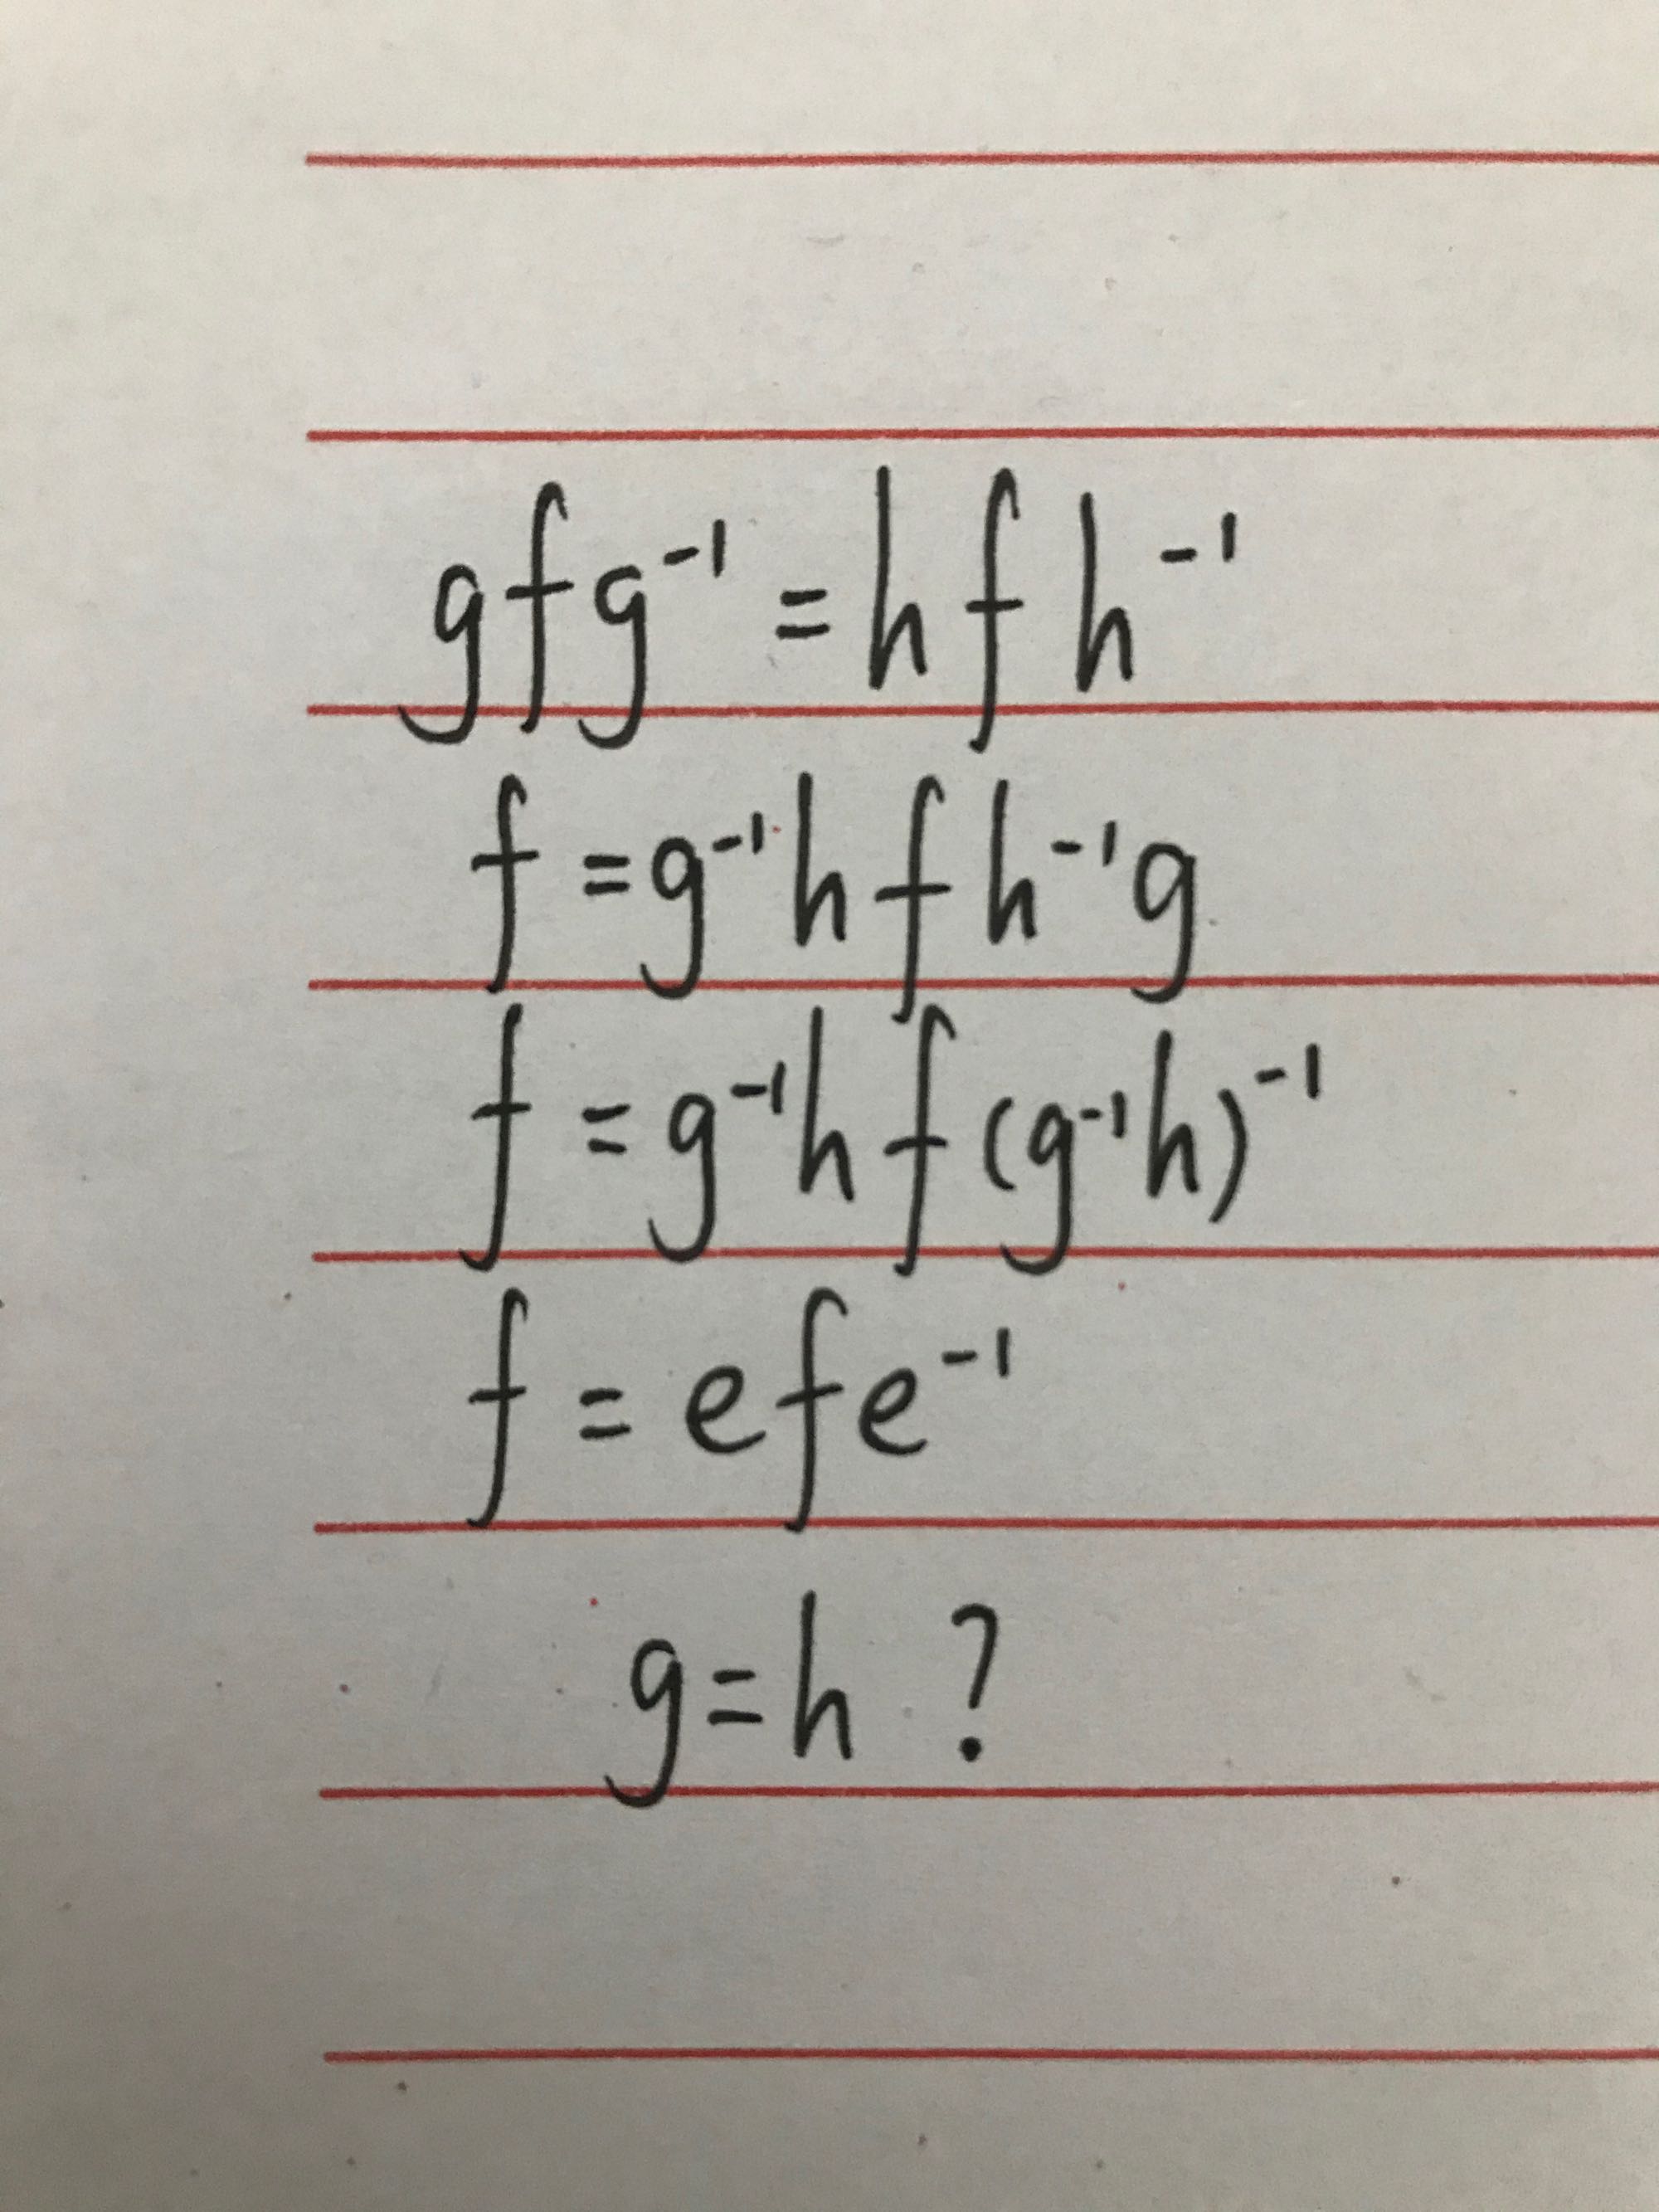 gfg⁻¹ = hfh⁻¹
f = g⁻¹hfh⁻¹g
f = g⁻¹hf(g⁻¹h)⁻¹
f = efe⁻¹
g = h ?